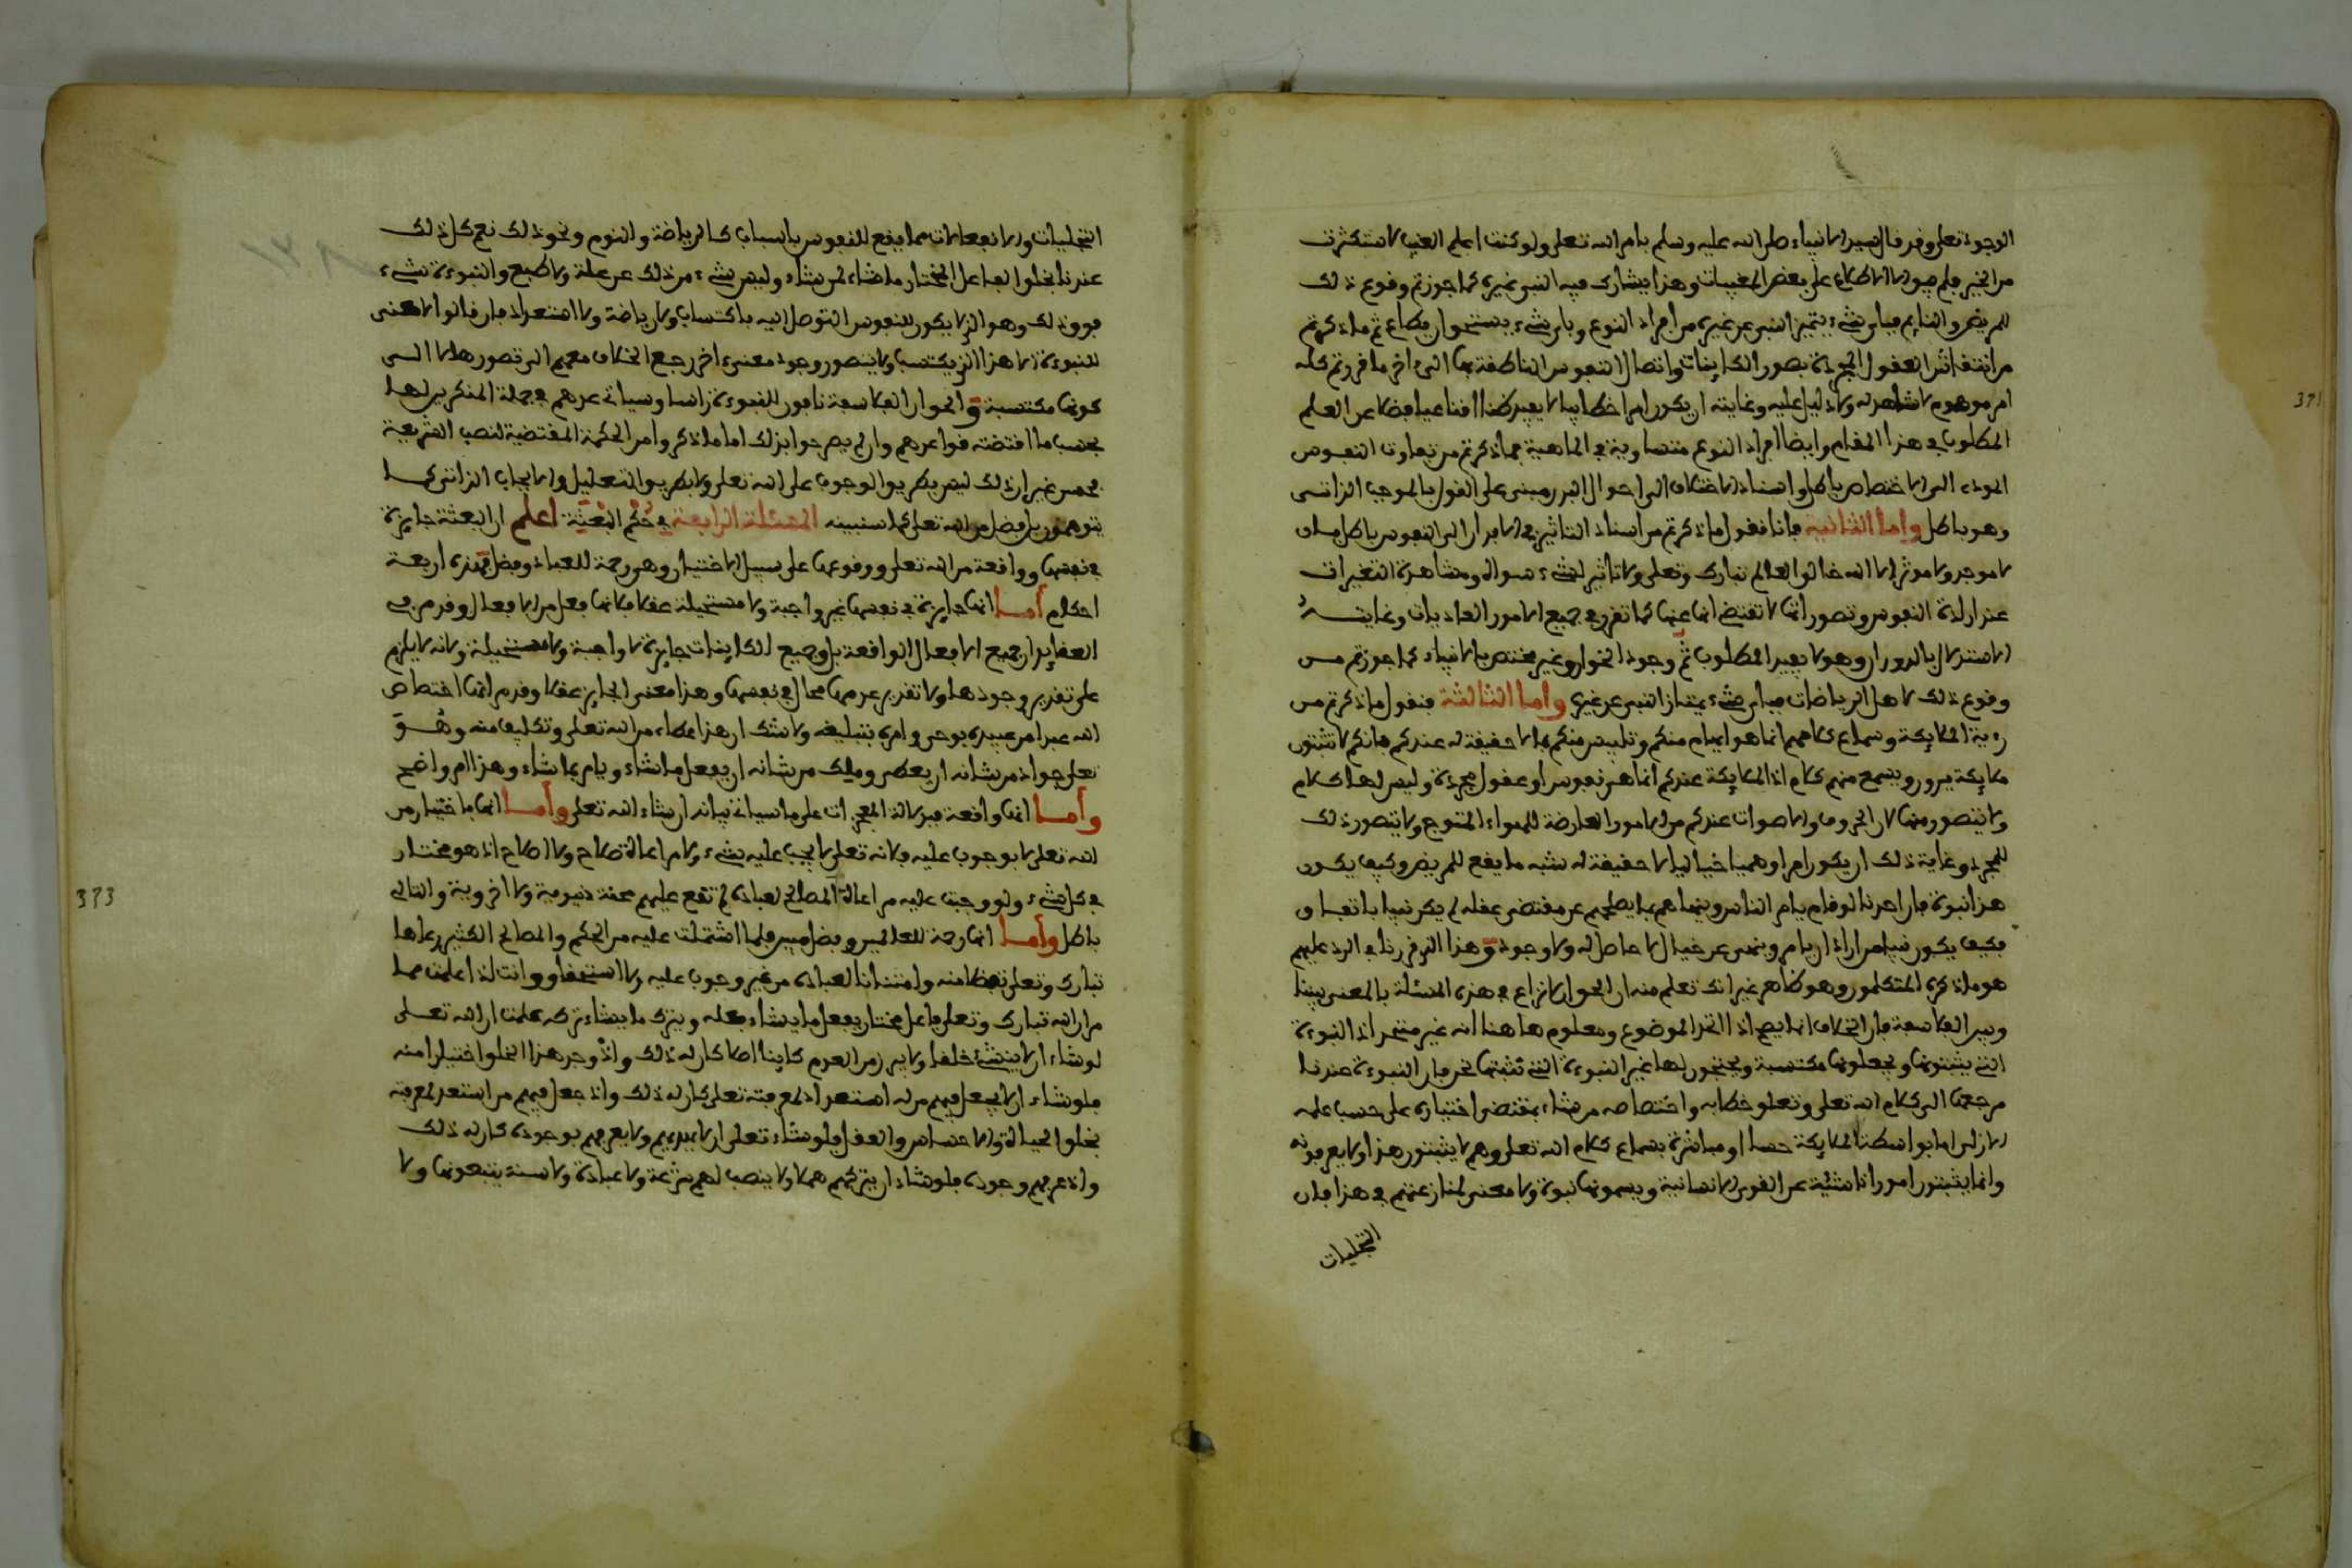 الوجود تعلى وقد قال لسيد الانبياء صلى الله عليه وسلم بامر الله تعلى ولو كنت اعلم الغيب لاستكثرت
من الخير فلم يجوز الا الاطلاع على بعض المغيبات وهذا يشارك فيه النبي غيره كما جوزتم وقوع ذلك
للمريض والنائم فباي شيء يتميز النبي عن غيره من افراد النوع وباي شيء يستحق ان يطاع ثم ما ذكرتم
من انتقاش العقول المجردة بصور الكاينات واتصال النفوس الناطقة بها الى اخر ما قررتم كله
امر موهوم لا شاهد له ولا دليل عليه وغايته ان يكون امرا خطابيا لا يفيد ظنا اقناعيا فضلا عن العلم
المطلوب في هذا المقام وايضا افراد النوع متساوية في الماهية فما ذكرتم من تفاوت النفوس
المودي الى الاختصاص باطل واسناد الاختلاف الى احوال البدن مبني على القول بالموجب الذاتي
وهو باطل واما الثانية فانا نقول ما ذكرتم من اسناد التاثير في الابدان الى النفوس باطل فان
لا موجد ولا موثر الا الله خالق العالم تبارك وتعلى ولا تاثير لشيء سواه ومشاهدة التغيرات
عند ارادة النفوس وتصوراتها لا تقتضي انها عنها كما تقرر في جميع الامور العاديات وغايته
الاستدلال بالدوران وهو لا يفيد المطلوب ثم وجود الخوارق غير مختص بالانبياء كما جوزتم من
وقوع ذلك لاهل الرياضات فباي شيء يمتاز النبي عن غيره واما الثالثة فنقول ما ذكرتم من
رءية الملايكة وسماع كلامهم انما هو ايهام منكم وتلبيس منكم بما لا حقيقة له عندكم فانكم لا تثبتون
ملايكة يرون ويسمع منهم كلام اذ الملايكة عندكم انما هي نفوس او عقول مجردة وليس لها كلام
ولا يتصور منها لان الحروف والاصوات عندكم من الامور العارضة للهواء المتموج ولا يتصور ذلك
للمجرد وغاية ذلك ان يكون امرا وهميا خياليا لا حقيقة له شبه ما يقع للمريض وكيف يكون
هذا نبوة فان احدنا لو قام يامر الناس وينهاهم بما يصلحهم عن مقتضى عقله لم يكن نبيا باتفاق
فكيف يكون نبيا من اراد ان يامر وينهى عن خيال لا حاصل له ولا وجود وهذا الذي قررنا في الرد عليهم
هو ما ذكره المتكلمون وهو ظاهر غير انك تعلم منه ان الحق ان لا نزاع في هذه المسئلة بالمعنى بيننا
وبين الفلاسفة فان الخلاف انما يصح اذا اتحد الموضوع ومعلوم هاهنا انه غير متحد اذ النبوءة
التي يثبتونها ويجعلونها مكتسبة ويحتجون لها غير النبوءة التي نثبتها نحن فان النبوءة عندنا
مرجعها الى كلام الله تعلى وتعلق خطابه واختصاصه من شاء بمقتضى اختياره على حسب علمه
الازلي اما بواسطة الملايكة حسا او مباشرة بسماع كلام الله تعلى وهم لا يثبتون هذا ولا يعرفونه
وانما يثبتون امورا ناشئية عن القوى الانسانية ويسمونها نبوة ولا معنى لمنازعتهم في هذا فان
التجليات
التجليات والانفعالات مما يقع للنفوس باسباب كالرياضة والنوم ونحو ذلك نعم كل ذلك
عندنا بخلق الفاعل المختار ما شاء لمن شاء وليس شيء من ذلك عن علة ولا طبع والنبوءة شيء
فوق ذلك وهو الذي لا يكون للنفوس التوصل اليه باكتساب ولا رياضة ولا استعداد فان قالوا لا معنى
للنبوءة الا هذا الذي يكتسب ولا يتصور وجود معنى اخر رجع الخلاف معهم الى تصورها لا الى
كونها مكتسبة والحق ان الفلاسفة نافون للنبوءة راسا وسياتي عدهم في جملة المنكرين لها
بحسب ما اقتضته قواعدهم وان لم يصرحوا بذلك اما ما ذكر وامر الحكمة المقتضية لنصب الشريعة
فحسن غير ان ذلك ليس بطريق الوجوب على الله تعلى ولا بطريق التعليل والايجاب الذاتي كما
يتوهمون بل بفضل من الله تعلى كما سنبينه المسئلة الرابعة في حكم البعثة اعلم ان البعثة جايزة
في نفسها وواقعة من الله تعلى ووقوعها على سبيل الاختيار وهو رحمة للعباد وفضل فهذه اربعة
احكام اما انها جايزة في نفسها غير واجبة ولا مستحيلة عقلا فلانها فعل من الافعال وقد مر في
العقايد ان جميع الافعال الواقعة بل وجميع الكاينات جايزة لا واجبة ولا مستحيلة ولانه لا يلزم
على تقدير وجودها ولا تقدير عدمها محال في نفسها وهذا معنى الجايز عقلا وقد مر انها اختصاص
الله عبدا من عبيده بوحي وامره بتبليغه ولا شك ان هذا عطاء من الله تعلى وتكليف منه وهو
تعلى جواد من شانه ان يعطي وملك من شانه ان يفعل ما شاء ويامر بما شاء وهذا امر واضح
واما انها واقعة فبدلالة المعجزات على ما سياتي بيانه ان شاء الله تعلى واما انها باختيار من
الله تعلى لا بوجوب عليه فلانه تعلى لا يجب عليه شيء ولا مراعاة صلاح ولا اصلاح اذ هو مختار
في كل شيء ولو وجبت عليه مراعاة المصالح لعباده لم تقع عليهم محنة دنيوية ولا اخروية والتالي
باطل واما انها رحمة للعالمين وفضل فبين فلما اشتملت عليه من الحكم والمصالح الكثير رعاها
تبارك وتعلى تفضلا منه وامتنانا لعباده من غير وجوب عليه ولا استحقاق وانت اذا علمت مما
مر ان الله تبارك وتعلى فاعل مختار يفعل ما يشاء فعله ويترك ما يشاء تركه علمت ان الله تعلى
لو شاء ان لا ينشئ خلقا ولا يبرز من العدم كاينا اصلا كان له ذلك واذ وجد هذا الخلق اختيارا منه
فلو شاء ان لا يجعل فيهم من له استعداد لمعرفته تعلى كان له ذلك واذ جعل فيهم من استعد لمعرفته
بخلق الحياة والاحساس والعقل فلو شاء تعلى ان لا يهديهم ولا يعرفهم بوجوده كان له ذلك
واذ عرفهم وجوده فلو شاء ان يتركهم هملا ولا ينصب لهم شرعة ولا عبادة ولا سنة يتبعونها ولا
371
373